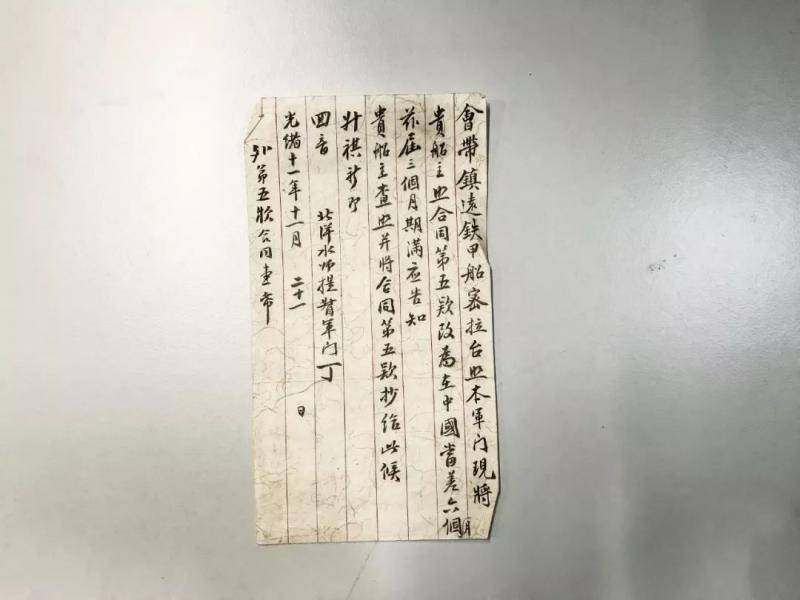 會帶鎮遠鉄甲船密拉台照本軍门現將
貴船主照合同第五欵改為在中國當差六個月
茲届三個月期滿应告知
貴船主查照并將合同第五欵抄给此候
升祺祈
回音
北洋水师提督军门丁
光绪十一年十一月 二十一 日
第五欵合同查